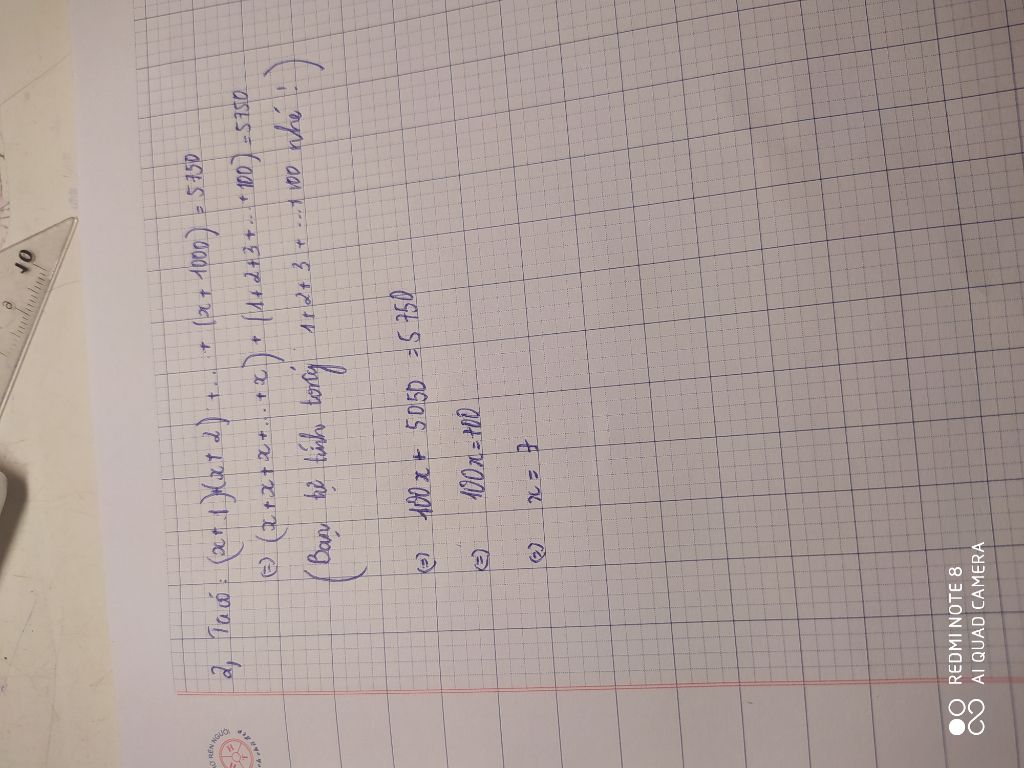 2, Ta có: (x+1)(x+2)+... + (x+1000) = 5750
(=) (x+x+x+...+x) + (1+2+3+...+100) = 5750
(Bạn tự tính tổng 1+2+3+...+100 nhé!)
(=) 100x + 5050 = 5750
(=) 100x = 700
(=) x = 7
REDMI NOTE 8
AI QUAD CAMERA
10